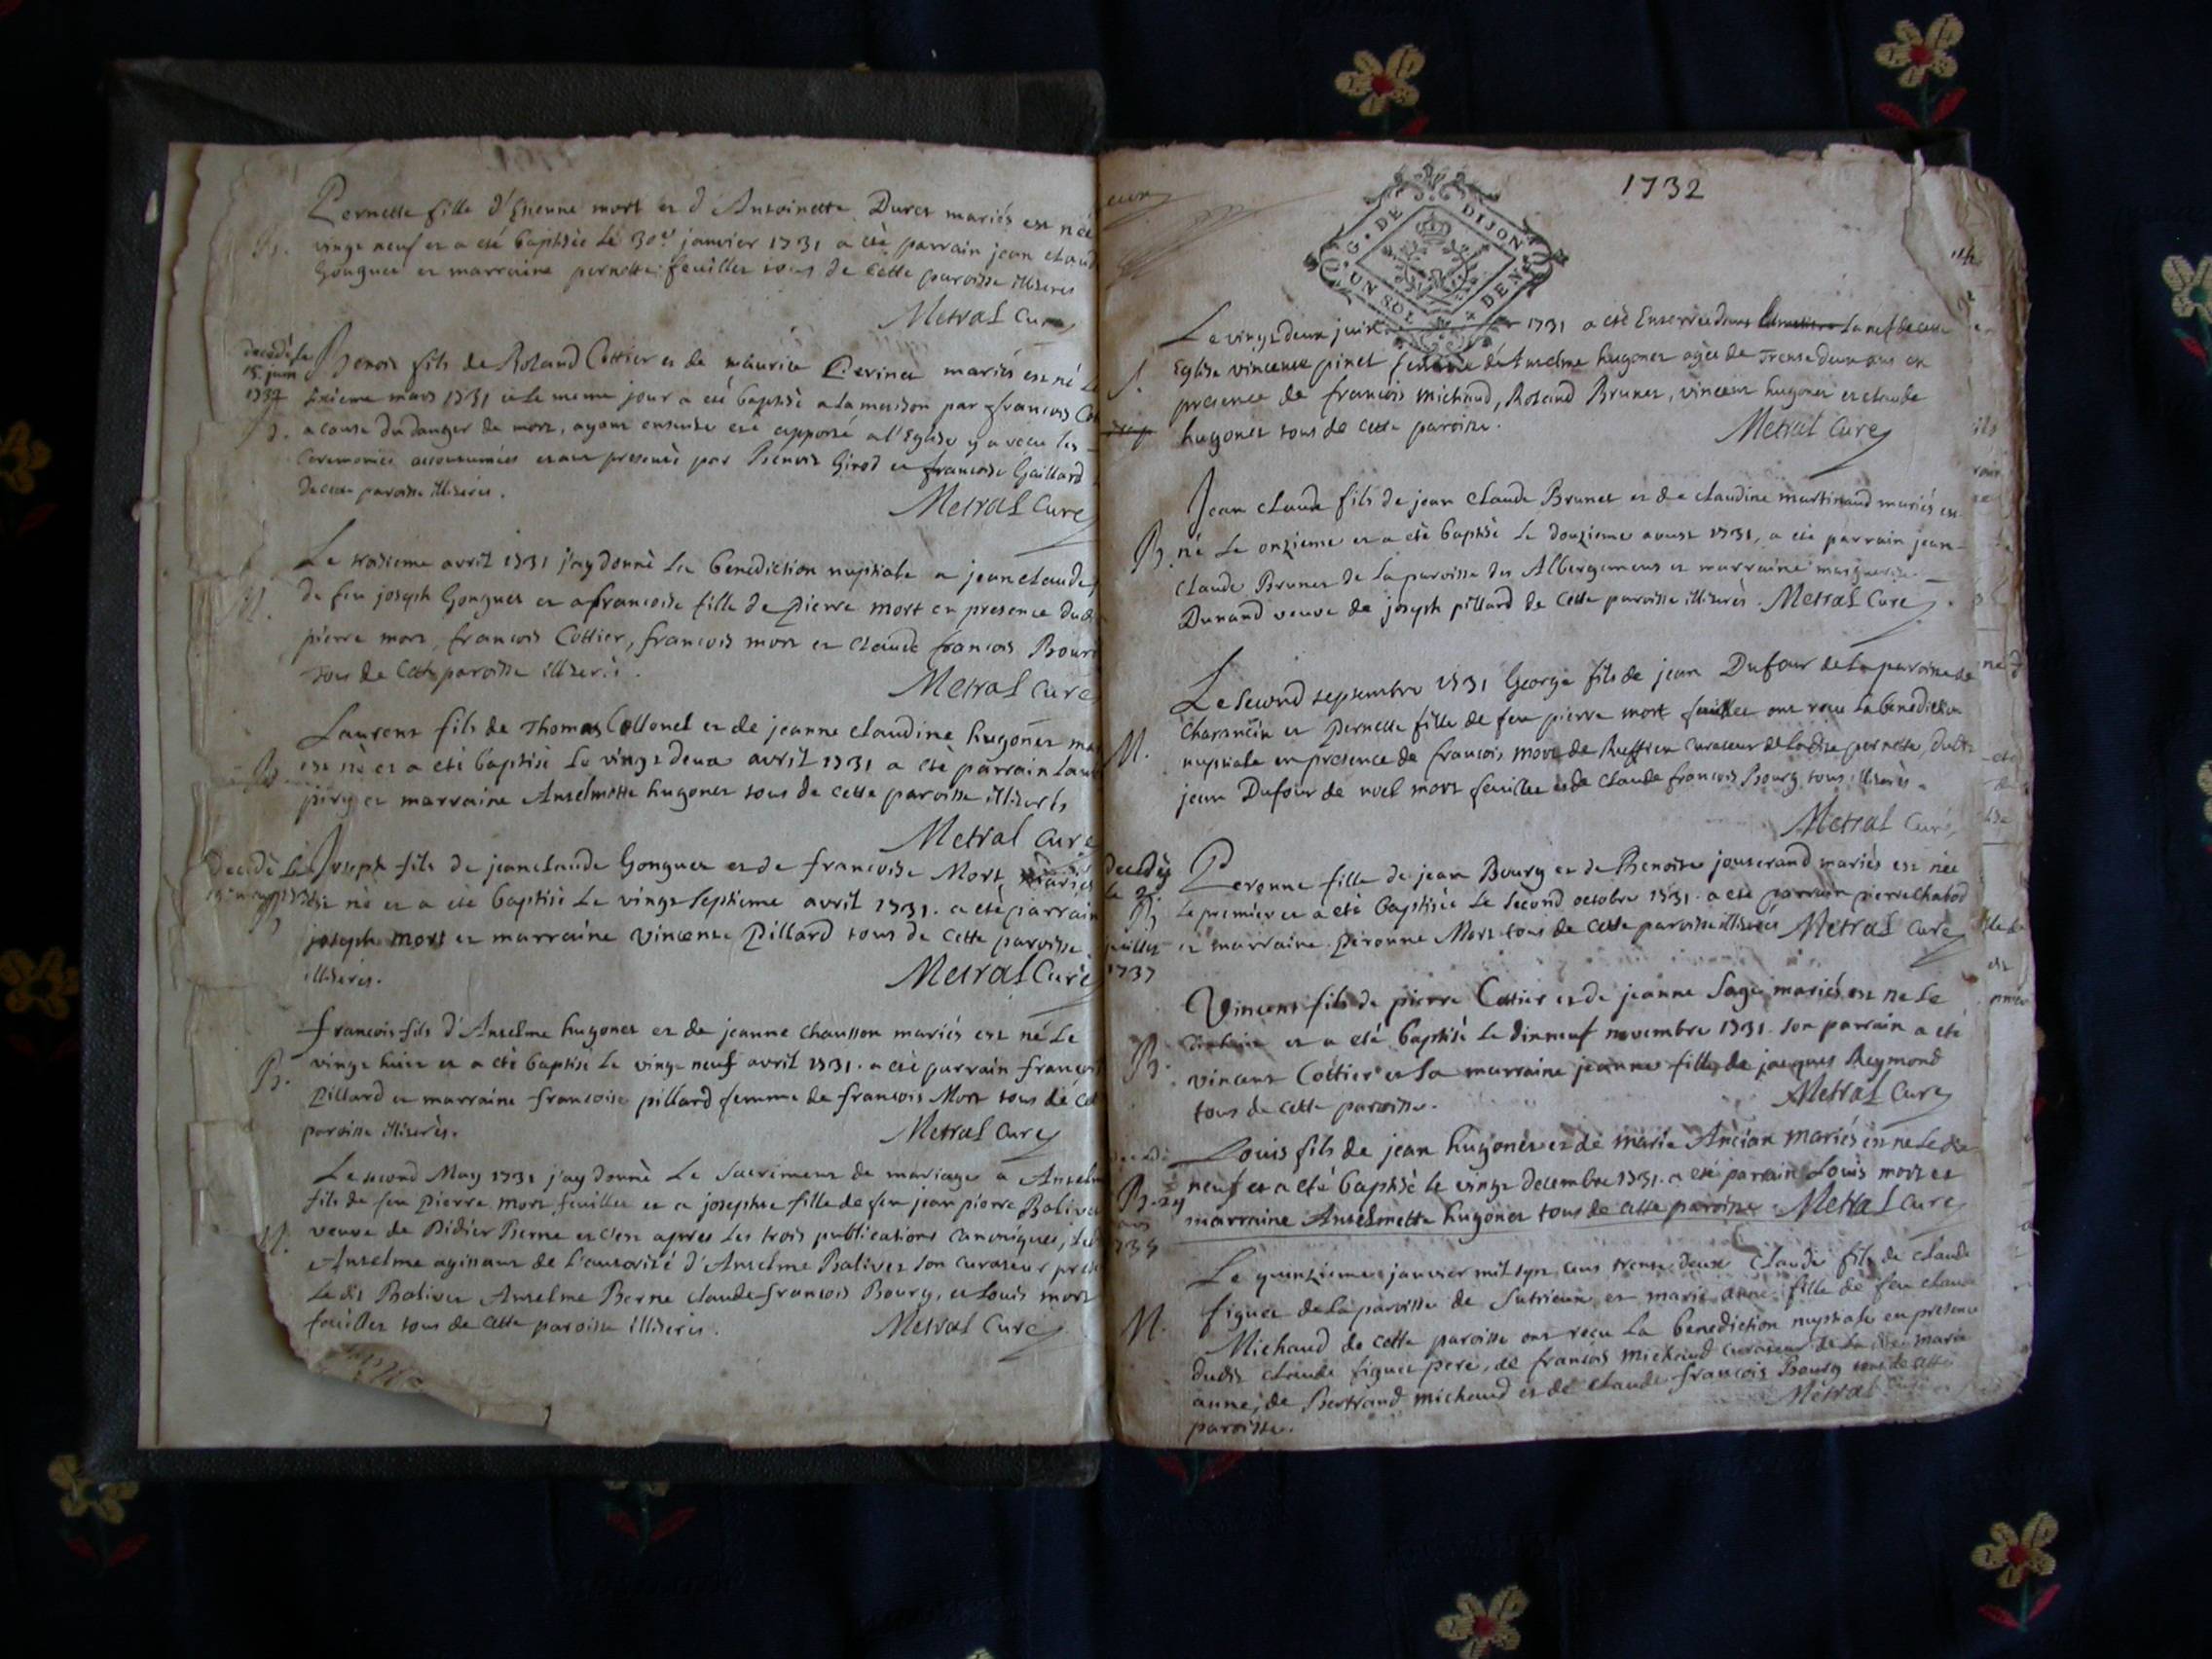 Pernette fille d'Etienne mort et d'Antoinette Duret mariés est née
vingt neuf et a été baptisée le 30e janvier 1731 a été parrain jean claud
Gonguet et marraine pernette feuillet tous de cette paroisse illiteres
Metral Curé
decedé le
15. juin
1732
Benoit fils de Roland Cottier et de maurice Perinet mariés est né le
sixieme mars 1731 et le meme jour a été baptisé a la maison par francois Cot
B. a cause du danger de mort, ayant ensuite été apporté a l'Eglise y a receu les
Ceremonies accoutumées etant presenté par Benoit Girod et francoise Gaillard
de cette paroisse illiterés.
Metral Curé
Le troisieme avril 1731 j'ay donné la benediction nuptiale a jean claude
M. de feu joseph Gonguet et a francoise fille de Pierre mort en presence dud
pierre mort, francois Cottier, francois mort et Claude francois Bour
tous de cette paroisse illiterés.
Metral Curé
Laurent fils de Thomas Collonel et de jeanne claudine hugonet ma
B. est né et a été baptisé le vingt deux avril 1731 a été parrain Lau
et marraine Anselmette hugonet tous de cette paroisse illiterés
Metral Curé
decedé le Joseph fils de jean claude Gonguet et de francoise Mort mariés
est né et a été baptisé le vingt septieme avril 1731. a été parrain
B.
joseph mort et marraine vincente Pillard tous de cette paroisse
illiterés.
Metral Curé
francois fils d'Anselme hugonet et de jeanne chausson mariés est né le
B. vingt huit et a été baptisé le vingt neuf avril 1731. a été parrain francoi
Pillard et marraine francoise pillard femme de francois Mort tous de cet
paroisse illiterés.
Metral Curé
Le second May 1731 j'ay donné le Sacrement de mariage a Anselm
fils de feu Pierre mort feuillet et a josephte fille de feu jean pierre Balivet
M. veuve de Didier Berne et c'est apres les trois publications canoniques, led
Anselme agissant de l'autorité d'Anselme Balivet son curateur pres
Le dit Balivet Anselme Berne claude francois Bourg, et Louis mort
feuillet tous de cette paroisse illiterés.
Metral Curé
1732
G. DE DIJON
UN SOL
DEN
Le vingt deux juin 1731 a été Enterrée dans la nef de cette
S. Eglise vincente pinet femme d'Anselme hugonet agée de Trente deux ans en
presence de francois michaud, Roland Brunet, vincent hugonet et claude
hugonet tous de cette paroisse.
Metral Curé
Jean claude fils de jean claude Brunet et de claudine martinaud mariés est
B. né le onzieme et a été baptisé le douzieme aoust 1731, a été parrain jean
claude Brunet de la paroisse des Albergemens et marraine marguerite
Dunand veuve de joseph pillard de cette paroisse illiterés. Metral Curé
Le second septembre 1731 George fils de jean Dufour de la paroisse de
Charancin et Pernette fille de feu pierre mort feuillet ont receu la benediction
M. nuptiale en presence de francois mort de Ruffieu curateur de ladite pernette, dudit
jean Dufour de noel mort feuillet et de claude francois Bourg tous illiterés.
Metral Curé
decedée
le 2e
juillet
1737
Peronne fille de jean Bourg et de Benoite jouserand mariés est née
B. le premier et a été baptisée le second octobre 1731. a été parrain pierre Chabod
et marraine peronne Mort tous de cette paroisse illiterés Metral Curé
Vincent fils de pierre Cottier et de jeanne Sage mariés est né le
B. et a été baptisé le dix neuf novembre 1731. son parrain a été
vincent Cottier et sa marraine jeanne fille de jacques Reymond
tous de cette paroisse.
Metral Curé
Louis fils de jean hugonet et de marie Ancian mariés est né le dix
B. neuf et a été baptisé le vingt decembre 1731. a été parrain Louis mort et
marraine Anselmette hugonet tous de cette paroisse Metral Curé
Le quinzieme janvier mil sept cens trente deux Claude fils de claude
M. figuet de la paroisse de Sutrieux et marie anne fille de feu claude
Michaud de cette paroisse ont receu la benediction nuptiale en presence
dudit claude figuet pere, de francois michaud curateur de ladite marie
anne, de Bertrand michaud et de claude francois Bourg tous de cette
paroisse.
Metral